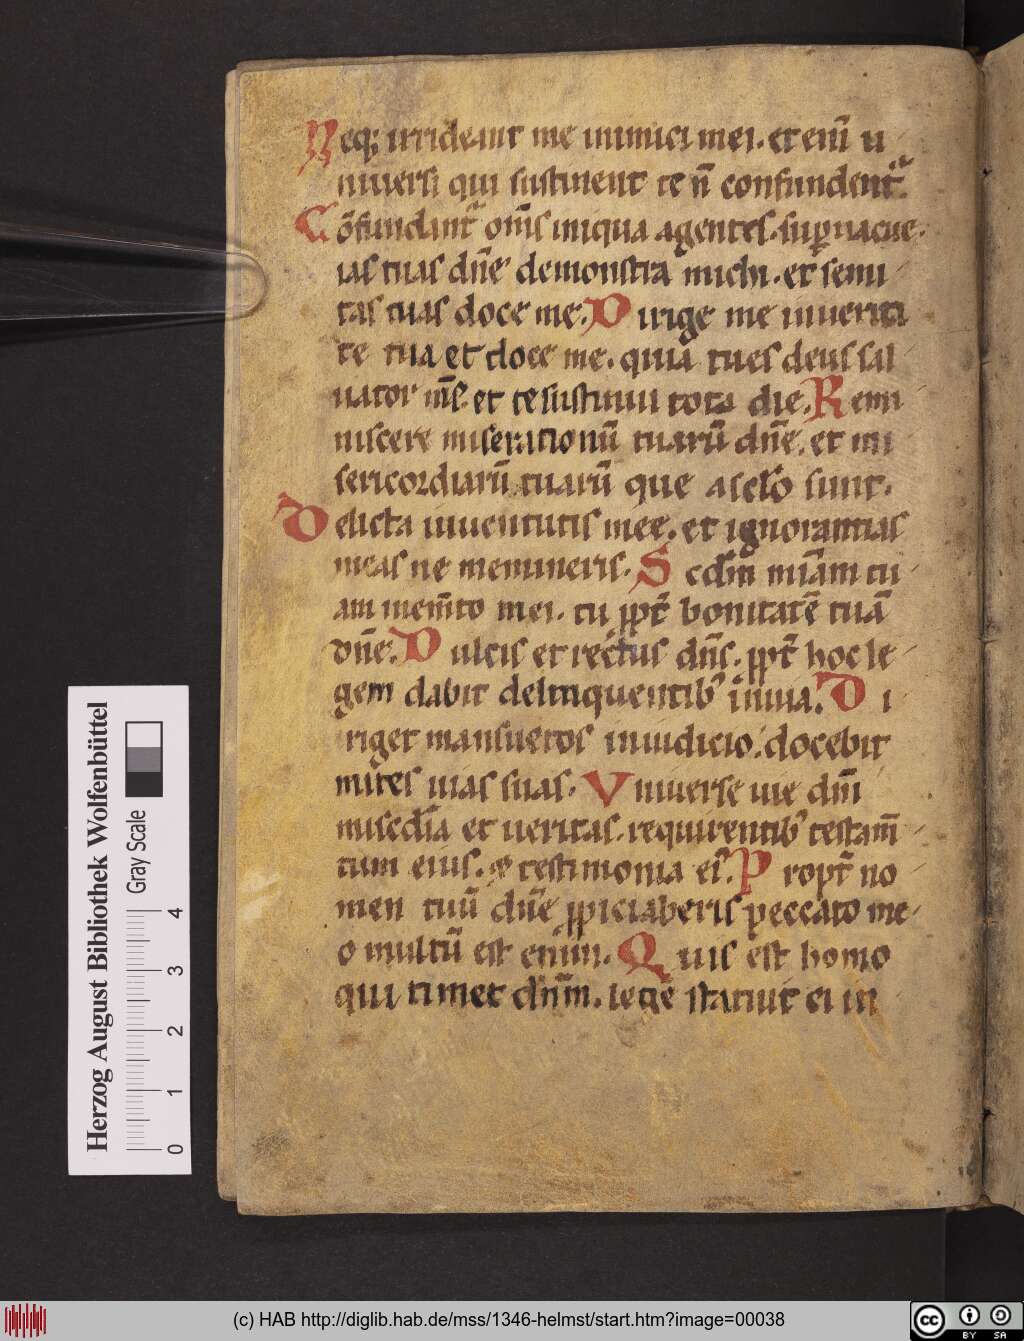 Neq; irrideant me inimici mei. et eni̅ u
niuersi qui sustinent te n̅ confundent᷑.
Co̅fundant᷑ om̅s iniqua agentes. sup̲uacue.
ias tuas dn̅e demonstra michi. et semi
tas tuas doce me. Dirige me inuerita
te tua et doce me. quia tu es deus sal
uator m̅s. et te sustinui tota die. Remi
niscere miserationu̅ tuaru̅ dn̅e. et mi
sericordiaru̅ tuaru̅ que a sc̅lo sunt.
Delicta iuuentutis mee. et ignorantias
meas ne memineris. Scd̅m mi̅am tu
am mem̅to mei. tu ꝓpt̅ bonitate̅ tua̅
dn̅e. Dulcis et rectus dn̅s. ꝓpt̅ hoc le
gem dabit delinquentib᷒ inuia. Di
riget mansuetos iniudicio. docebit
mites uias suas. Vniuerse uie dm̅i
misc̅dia et ueritas. requirentib᷒ testam̅
tum eius. et testimonia ei᷒. Propt̅ no
men tuu̅ dn̅e ꝓpiciaberis peccato me
o multu̅ est enim. Quis est homo
qui timet dn̅m. lege̅ statuit ei in
Herzog August Bibliothek Wolfenbüttel
Gray Scale
0 1 2 3 4
(c) HAB http://diglib.hab.de/mss/1346-helmst/start.htm?image=00038
cc BY SA